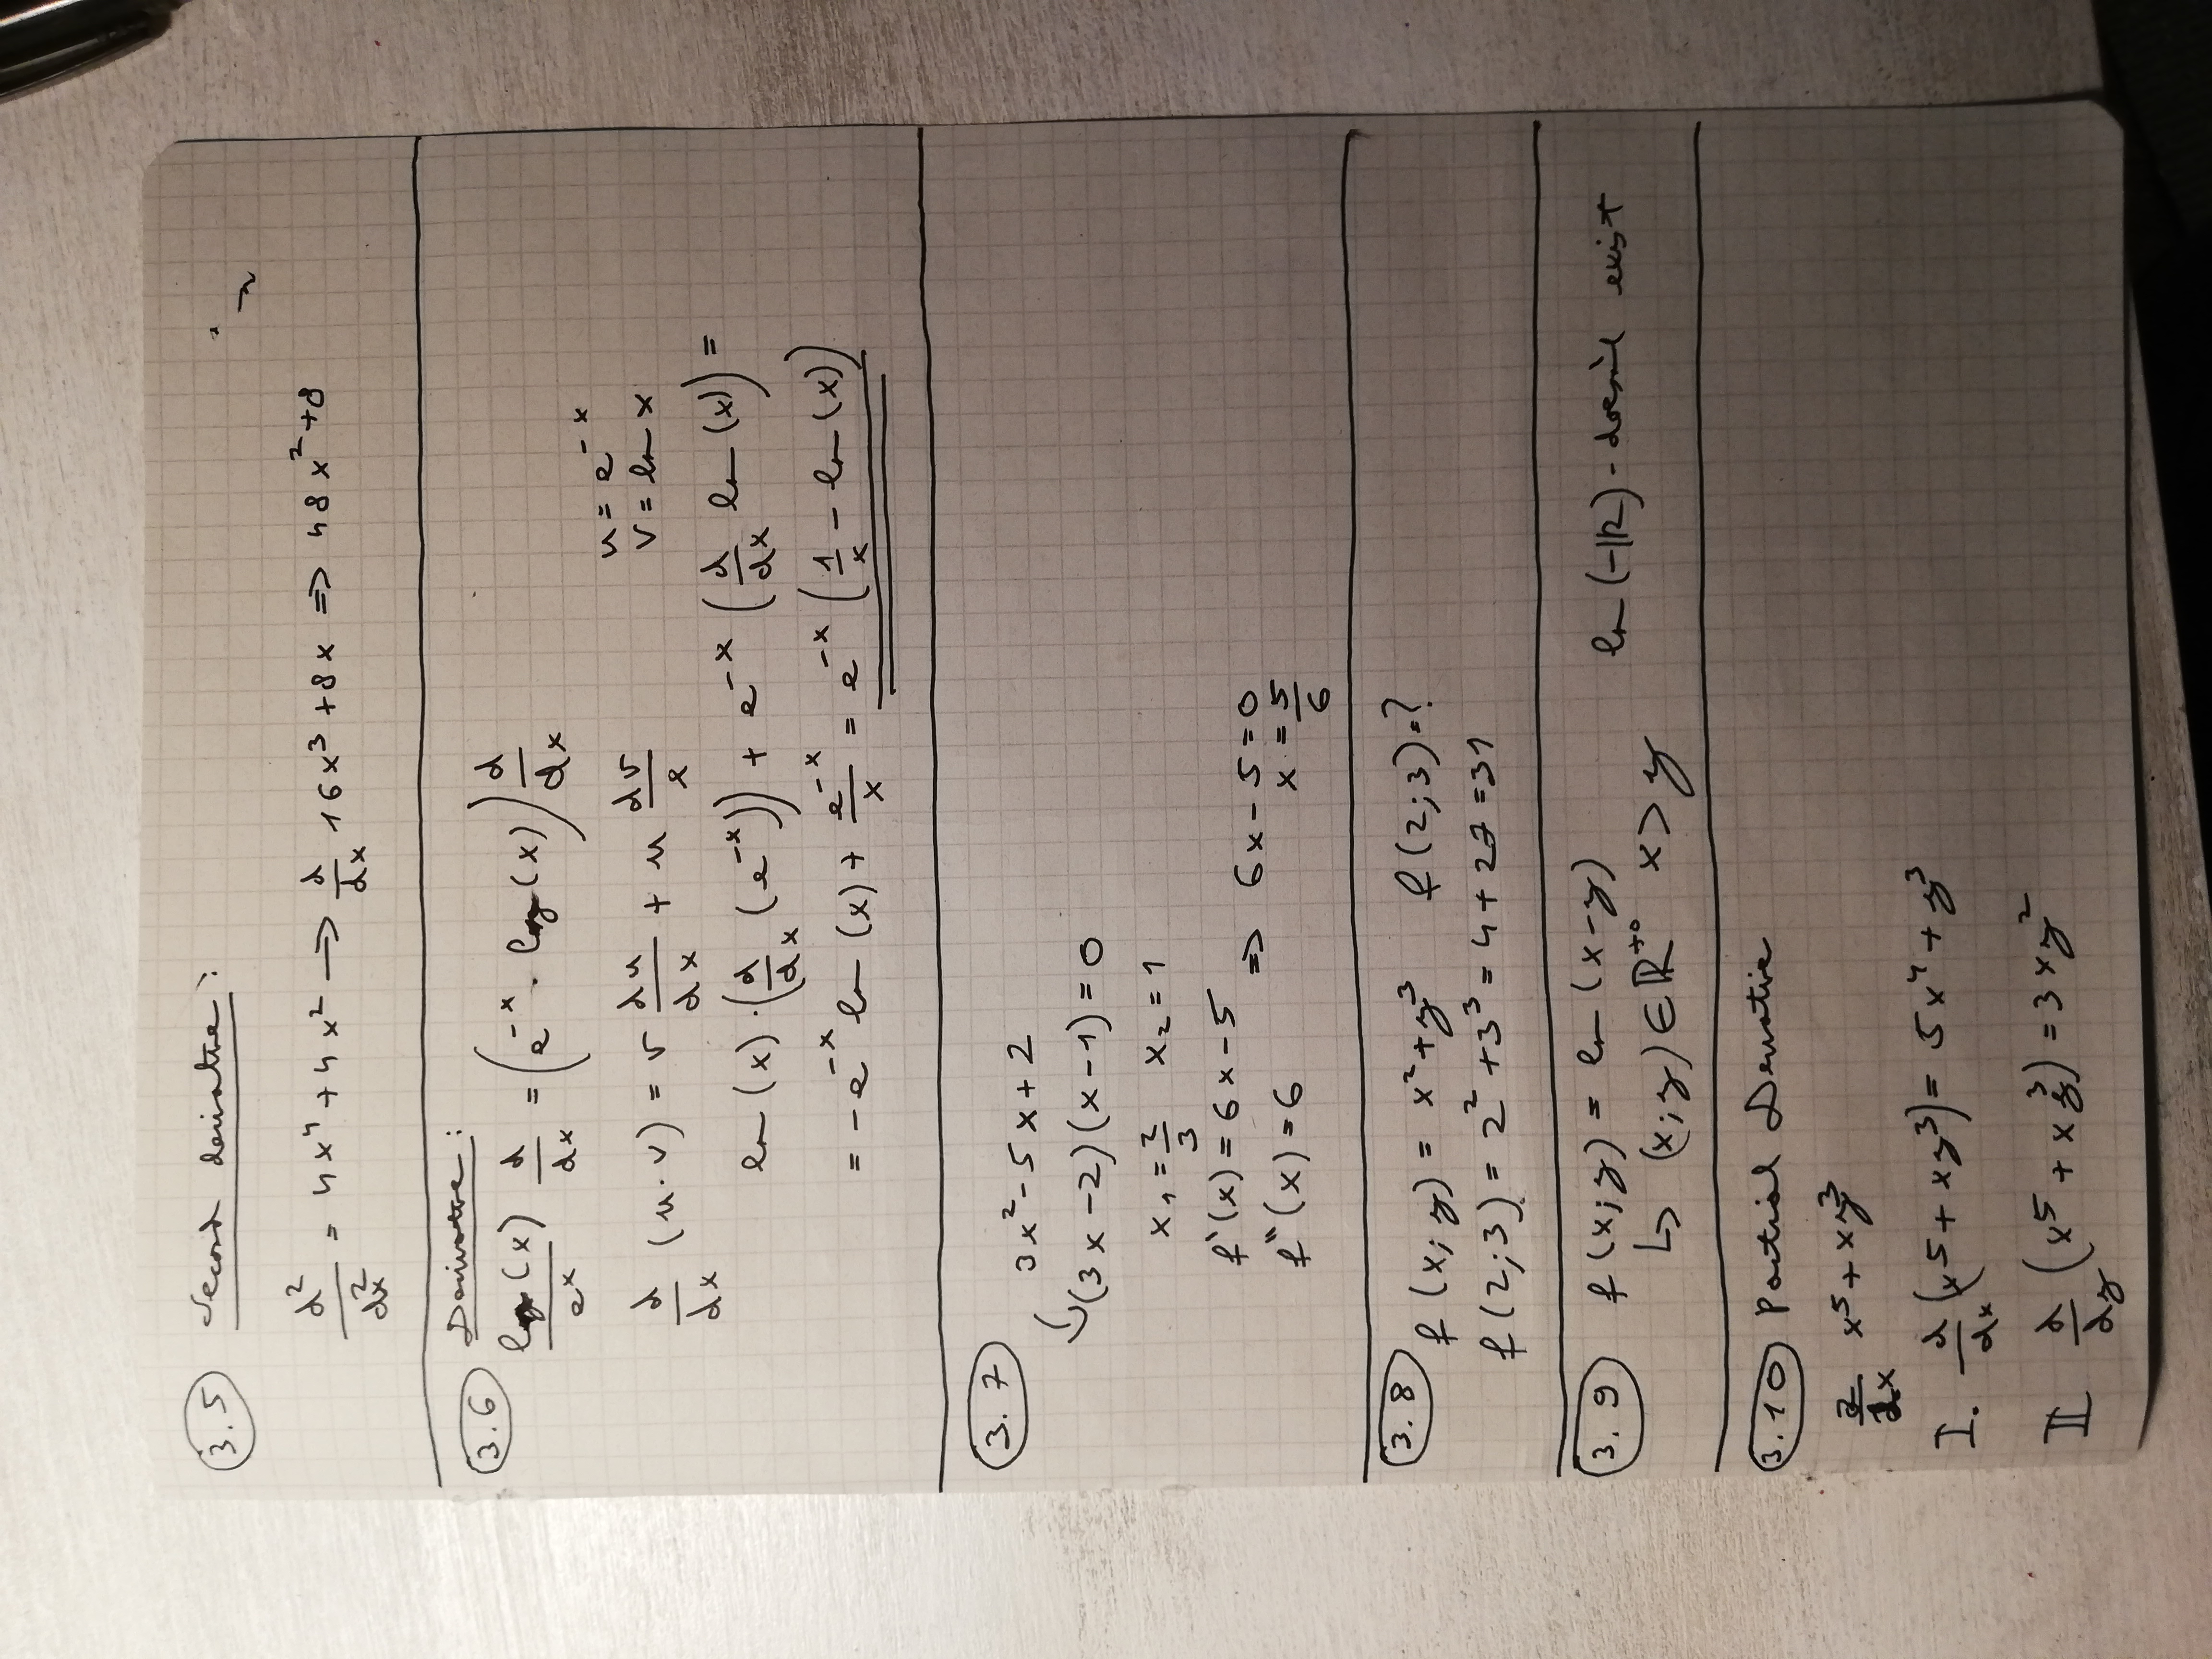 3.5 Second derivative:
d²/dx² = 4x⁴ + 4x² → d/dx 16x³ + 8x => 48x² + 8
3.6 Derivative:
log(x)/eˣ d/dx = (e⁻ˣ · log(x)) d/dx
u = e⁻ˣ
v = ln x
d/dx (u·v) = v du/dx + u dv/x
ln(x)·(d/dx (e⁻ˣ)) + e⁻ˣ (d/dx ln(x)) =
= -e⁻ˣ ln(x) + e⁻ˣ/x = e⁻ˣ (1/x - ln(x))
3.7 3x² - 5x + 2
(3x - 2)(x - 1) = 0
x₁ = 2/3 x₂ = 1
f'(x) = 6x - 5 => 6x - 5 = 0
f"(x) = 6 x = 5/6
3.8 f(x;y) = x² + y³ f(2;3) = ?
f(2;3) = 2² + 3³ = 4 + 27 = 31
3.9 f(x;y) = ln(x-y) ln(-ℝ) - exist
↳ (x;y) ∈ ℝ⁺⁰ x > y
3.10 Partial Derivative
d/dx x⁵ + xy³
I. d/dx (x⁵ + xy³) = 5x⁴ + y³
II d/dy (x⁵ + xy³) = 3xy²